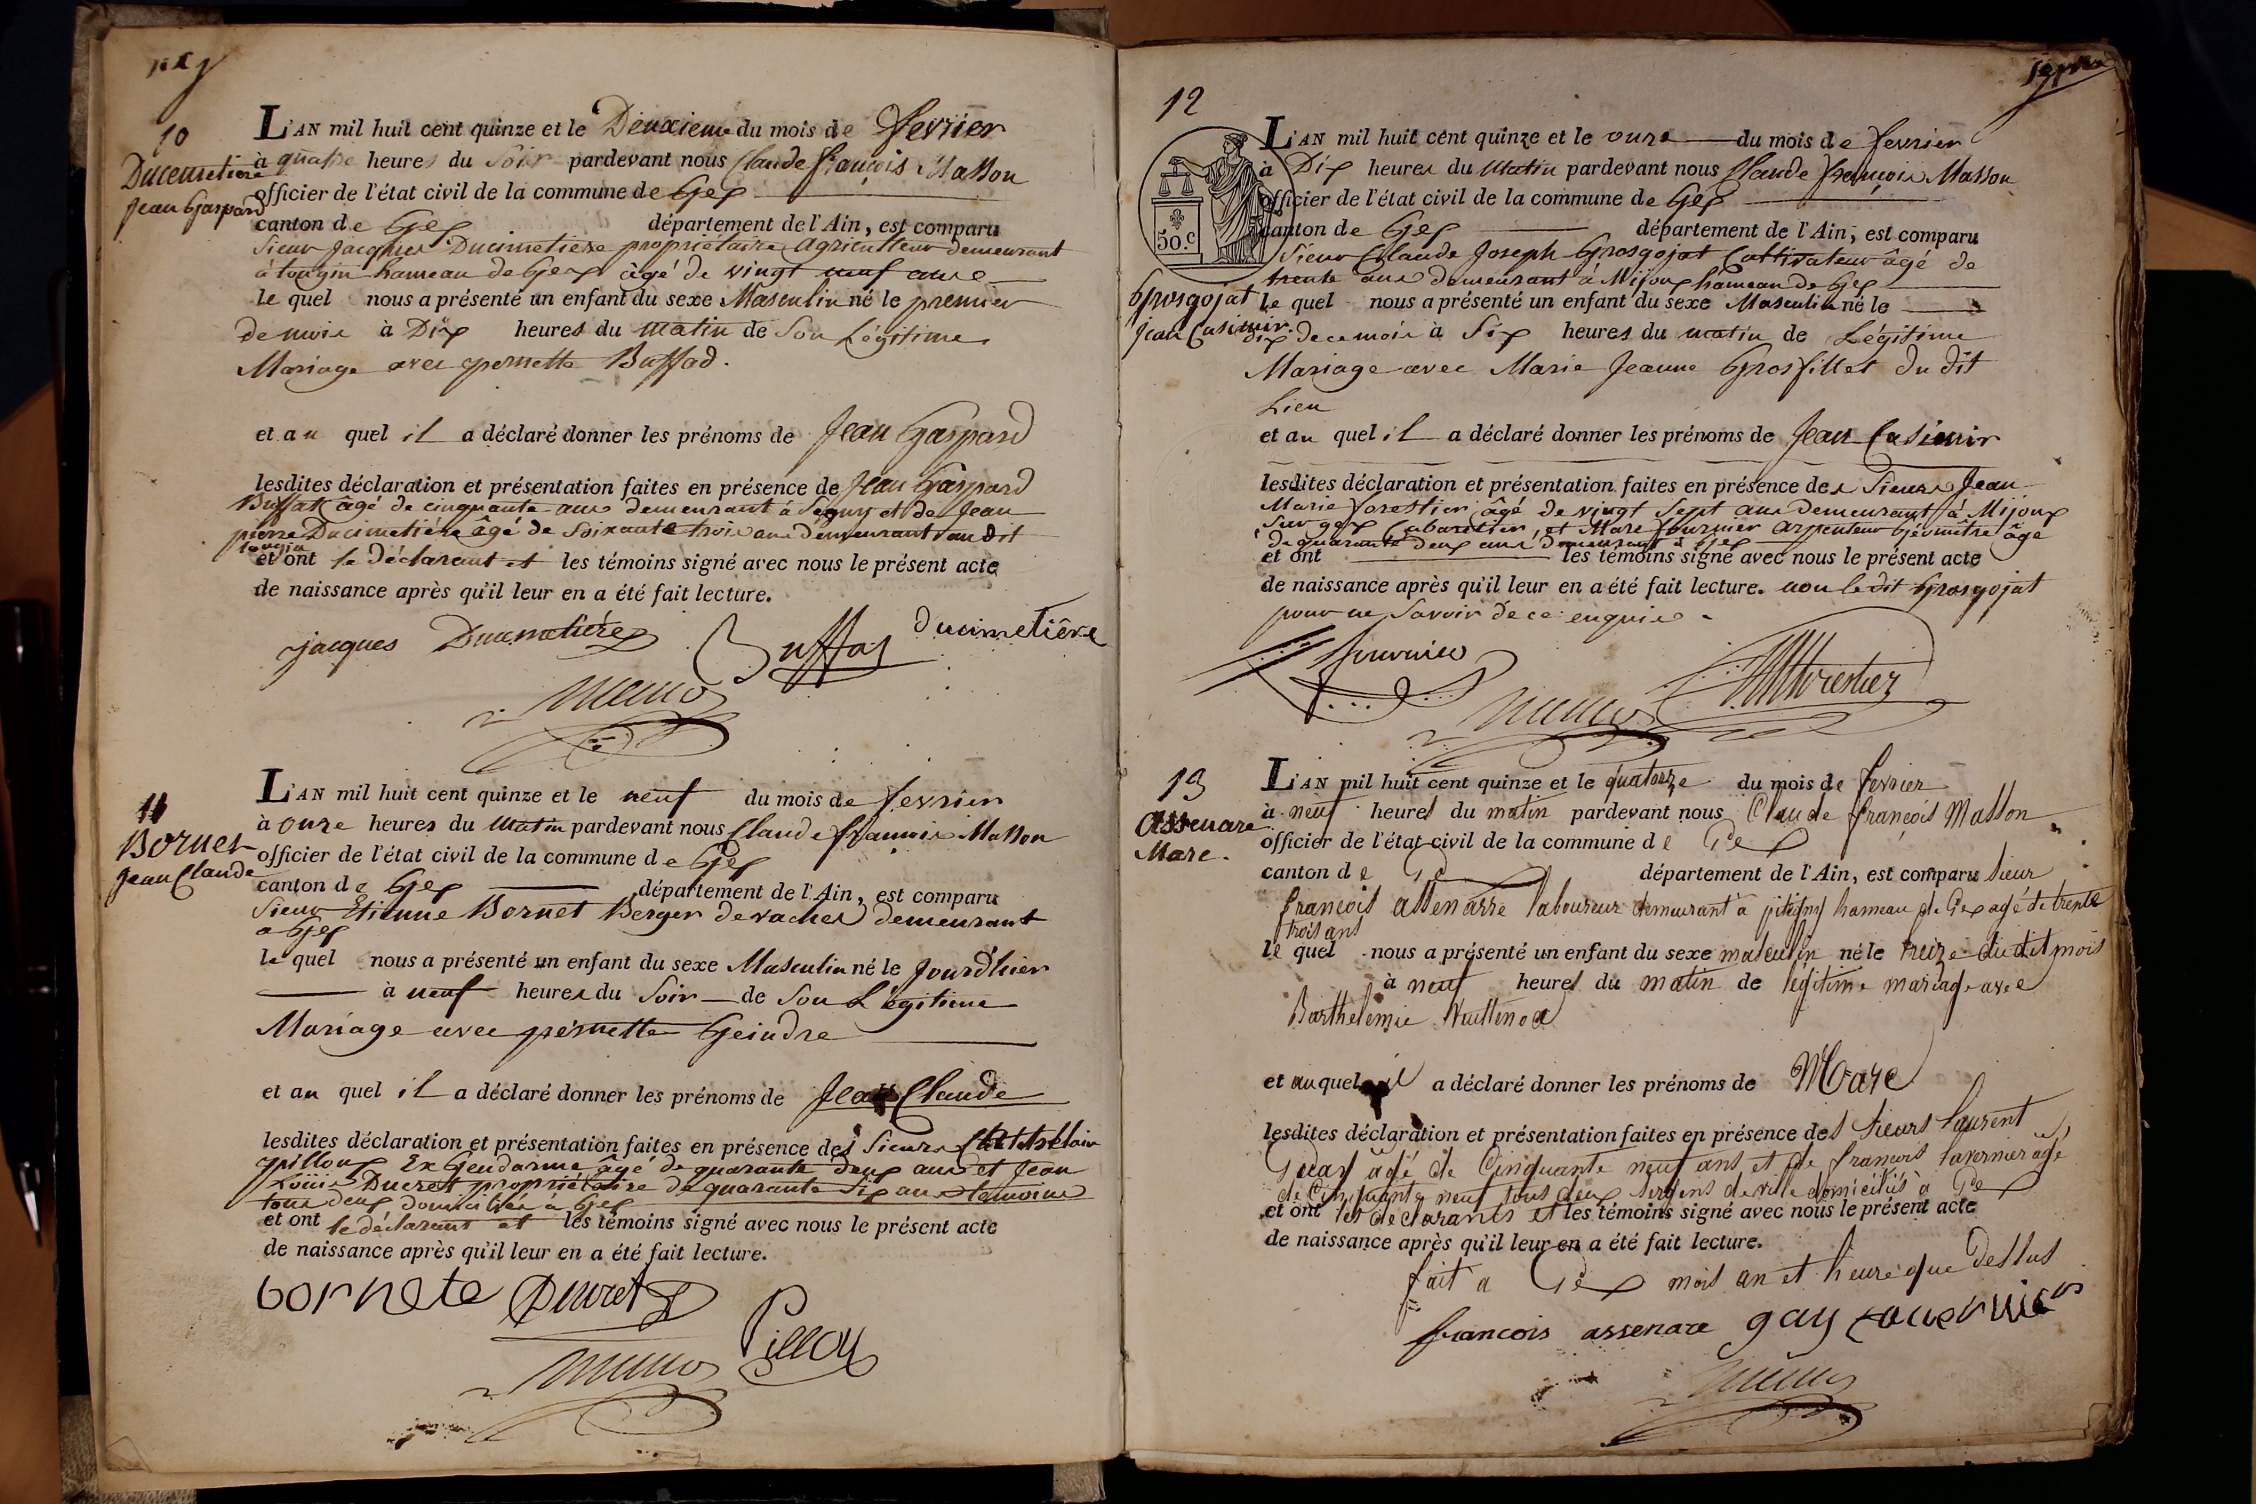 10
Ducemetiere
Jean Gaspard
L'AN mil huit cent quinze et le Deuxieme du mois de fevrier
à quatre heures du Soir pardevant nous Claude françois Masson
officier de l'état civil de la commune de Gex
canton de Gex département de l'Ain, est comparu
Sieur Jacques Ducimetiere propriétaire agriculteur demeurant
à tougin hameau de Gex âgé de vingt neuf ans
le quel nous a présenté un enfant du sexe Masculin né le premier
de mois à Dix heures du matin de Son Légitime
Mariage avec pernette Buffad.
et au quel il a déclaré donner les prénoms de Jean Gaspard
lesdites déclaration et présentation faites en présence de Jean Gaspard
Buffat âgé de cinquante ans demeurant à Segny et de Jean
pierre Ducimetière âgé de Soixante trois ans demeurant au dit
tougin
et ont le déclarant et les témoins signé avec nous le présent acte
de naissance après qu'il leur en a été fait lecture.
jacques Ducimetière Buffat ducimetière
11
Bornet
Jean Claude
L'AN mil huit cent quinze et le neuf du mois de fevrier
à onze heures du Matin pardevant nous Claude françois Masson
officier de l'état civil de la commune de Gex
canton de Gex département de l'Ain, est comparu
Sieur Etienne Bornet Berger de vaches demeurant
a Gex
le quel nous a présenté un enfant du sexe Masculin né le Jourd'hier
à neuf heures du Soir de Son Légitime
Mariage avec pernette Geindre
et au quel il a déclaré donner les prénoms de Jean Claude
lesdites déclaration et présentation faites en présence des Sieurs
pilloux Ex Gendarme âgé de quarante deux ans et Jean
Louis Ducret propriétaire de quarante Six ans
tous deux domiciliés à Gex
et ont le déclarant et les témoins signé avec nous le présent acte
de naissance après qu'il leur en a été fait lecture.
bornete Ducret
Pilloux
12
Grosgojat
Jean Casimir.
5o.c
L'AN mil huit cent quinze et le onze du mois de fevrier
à Dix heures du Matin pardevant nous Claude françois Masson
officier de l'état civil de la commune de Gex
canton de Gex département de l'Ain, est comparu
Sieur Claude Joseph Grosgojat Cultivateur âgé de
trente ans demeurant à Mijoux hameau de Gex
le quel nous a présenté un enfant du sexe Masculin né le
dix de ce mois à Six heures du matin de Légitime
Mariage avec Marie Jeanne Grosfillet du dit
Lieu
et au quel il a déclaré donner les prénoms de Jean Casimir
lesdites déclaration et présentation faites en présence des Sieurs Jean
Marie forestier âgé de vingt Sept ans demeurant à Mijoux
Sur gex Cabaretier, et Marc fournier arpenteur Géomètre âgé
de quarante deux ans demeurant à Gex
et ont les témoins signé avec nous le présent acte
de naissance après qu'il leur en a été fait lecture. non le dit Grosgojat
pour ne Savoir de ce enquis
fournier
forestier
13
Assenare
Marc.
L'AN mil huit cent quinze et le quatorze du mois de fevrier
à neuf heures du matin pardevant nous Claude françois Masson
officier de l'état civil de la commune de Gex
canton de Gex département de l'Ain, est comparu Sieur
françois assenarre laboureur demeurant à pitegny hameau de Gex agé de trente
trois ans
le quel nous a présenté un enfant du sexe masculin né le treize du dit mois
à neuf heures du matin de légitime mariage avec
Barthelemie
et auquel il a déclaré donner les prénoms de Marc
lesdites déclaration et présentation faites en présence des Sieurs laurent
Guay âgé de Cinquante neuf ans et de françois lavernier agé
de Cinquante neuf tous deux sergens de ville domiciliés à Gex
et ont les declarants et les témoins signé avec nous le présent acte
de naissance après qu'il leur en a été fait lecture.
fait a Gex mois an et heure que dessus
francois assenare gay lavernier